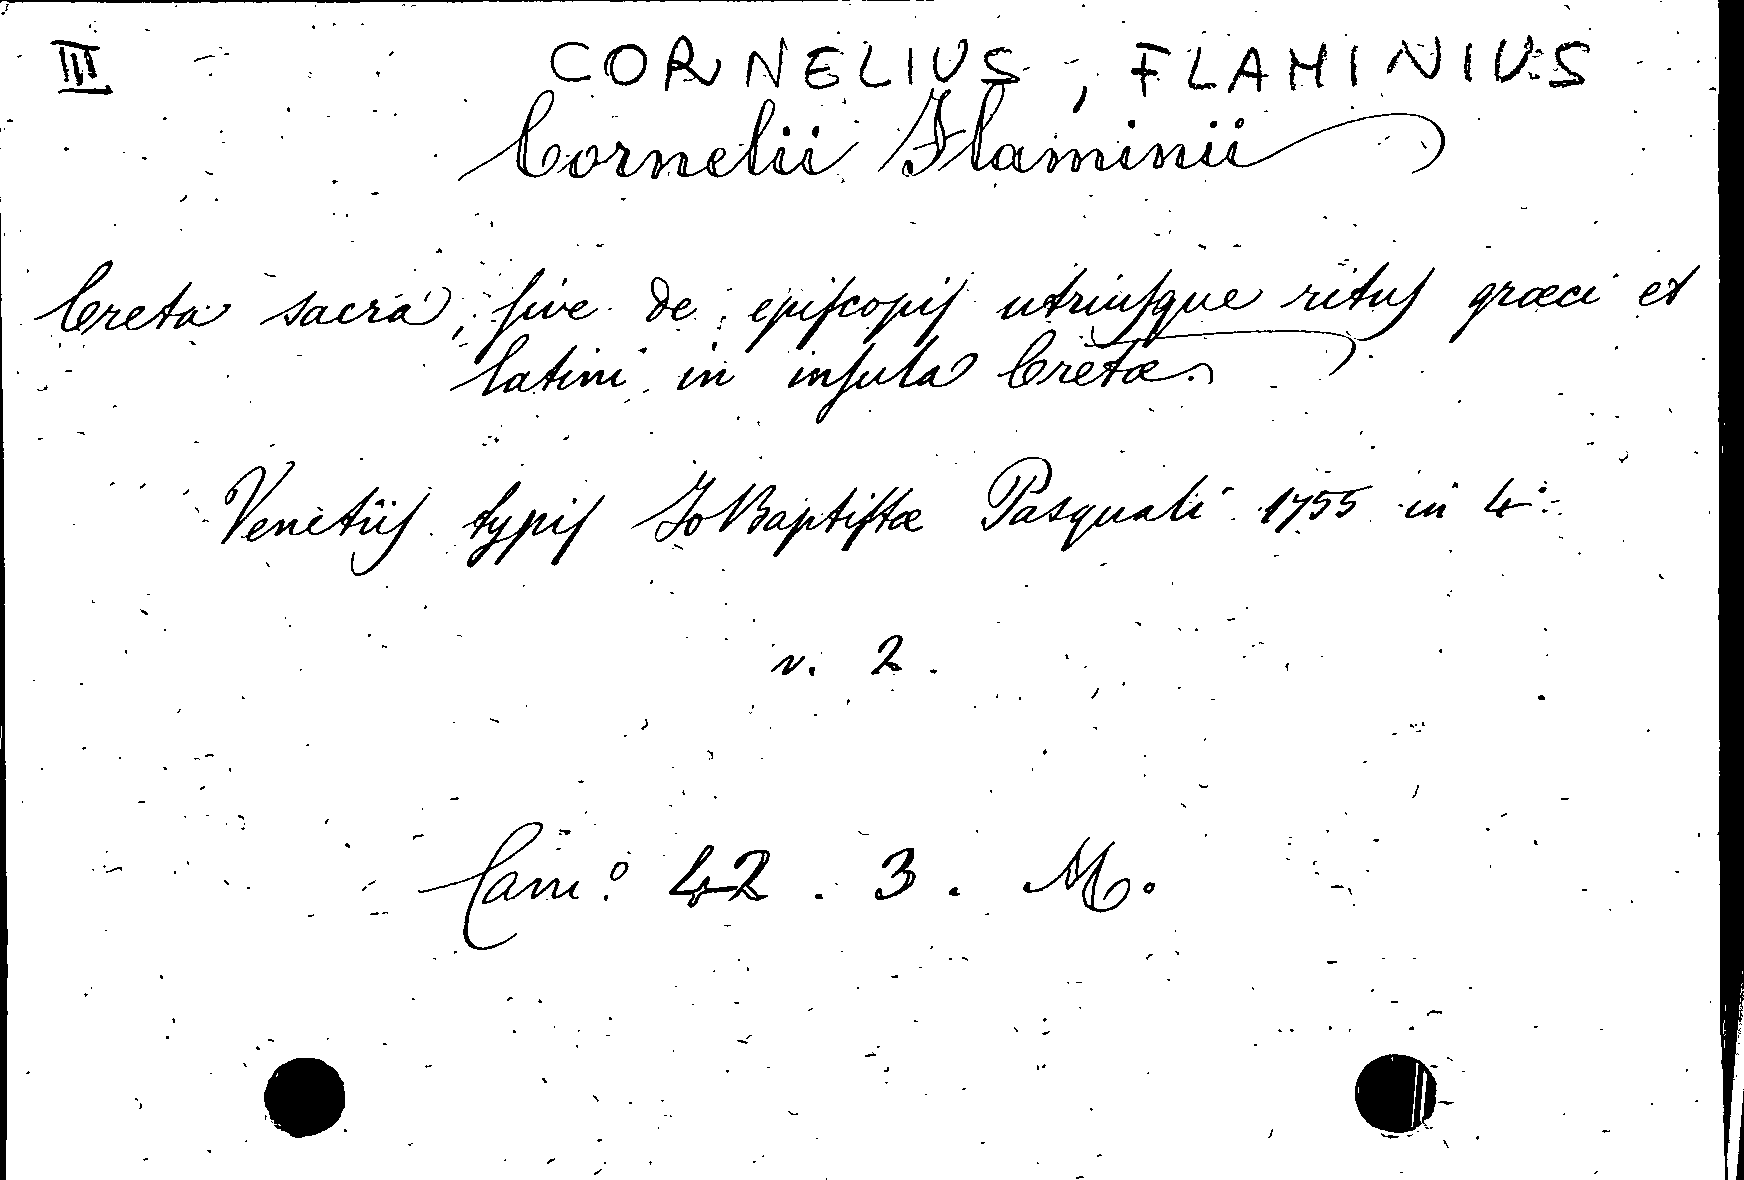 III CORNELIUS, FLAMINIUS
Cornelii Flaminii
Creta sacra, sive de episcopis utriusque ritus græci et
latini in insula Cretæ.
Venetiis typis Jo Baptistæ Pasquali 1755 in 4°
v. 2.
Cam° 42. 3. M.